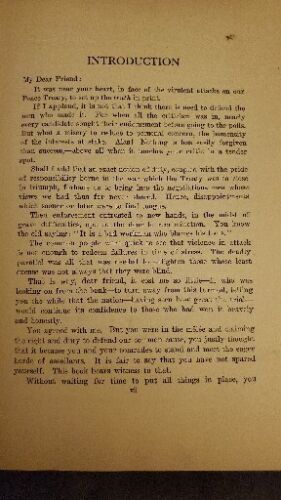 INTRODUCTION
My Dear Friend:
It was near your heart, in face of the virulent attacks on our
Peace Treaty, to set up the truth in print.
If I applaud, it is not that I think there is need to defend the
men who made it. For when all the criticism was in, nearly
every candidate sought their endorsement before going to the polls.
But what a misery to reduce to personal concern, the immensity
of the interests at stake. Alas! Nothing is less easily forgiven
than success,—above all when it touches your critic in a tender
spot.
of responsibility borne in the war which the Treaty was to close
in triumph, forbade us to bring into the negotiations men whose
views we had thus far never shared. Hence, disappointments
which sooner or later were to find tongues.
Then enforcement entrusted to new hands, in the midst of
grave difficulties,
the old saying: "It is a bad workman who blames his tools."
The common people were quick to see that violence in attack
is not enough to redeem failures in times of stress. The deadly
parallel was all that was needed to enlighten those whose least
excuse was not always that they were blind.
That is why, dear friend, it cost me so little—I, who was
looking on from the bank—to turn away from this turmoil, telling
you the while that the nation—having seen
would continue its confidence to those who had won it bravely
and honestly.
You agreed with me. But you were in the mêlée and claiming
the right and duty to defend our common cause, you justly thought
that it became you and your comrades to stand and meet the eager
horde of assailants. It is fair to say that you have not spared
yourself. This book bears witness to that.
Without waiting for time to put all things in place, you
vii